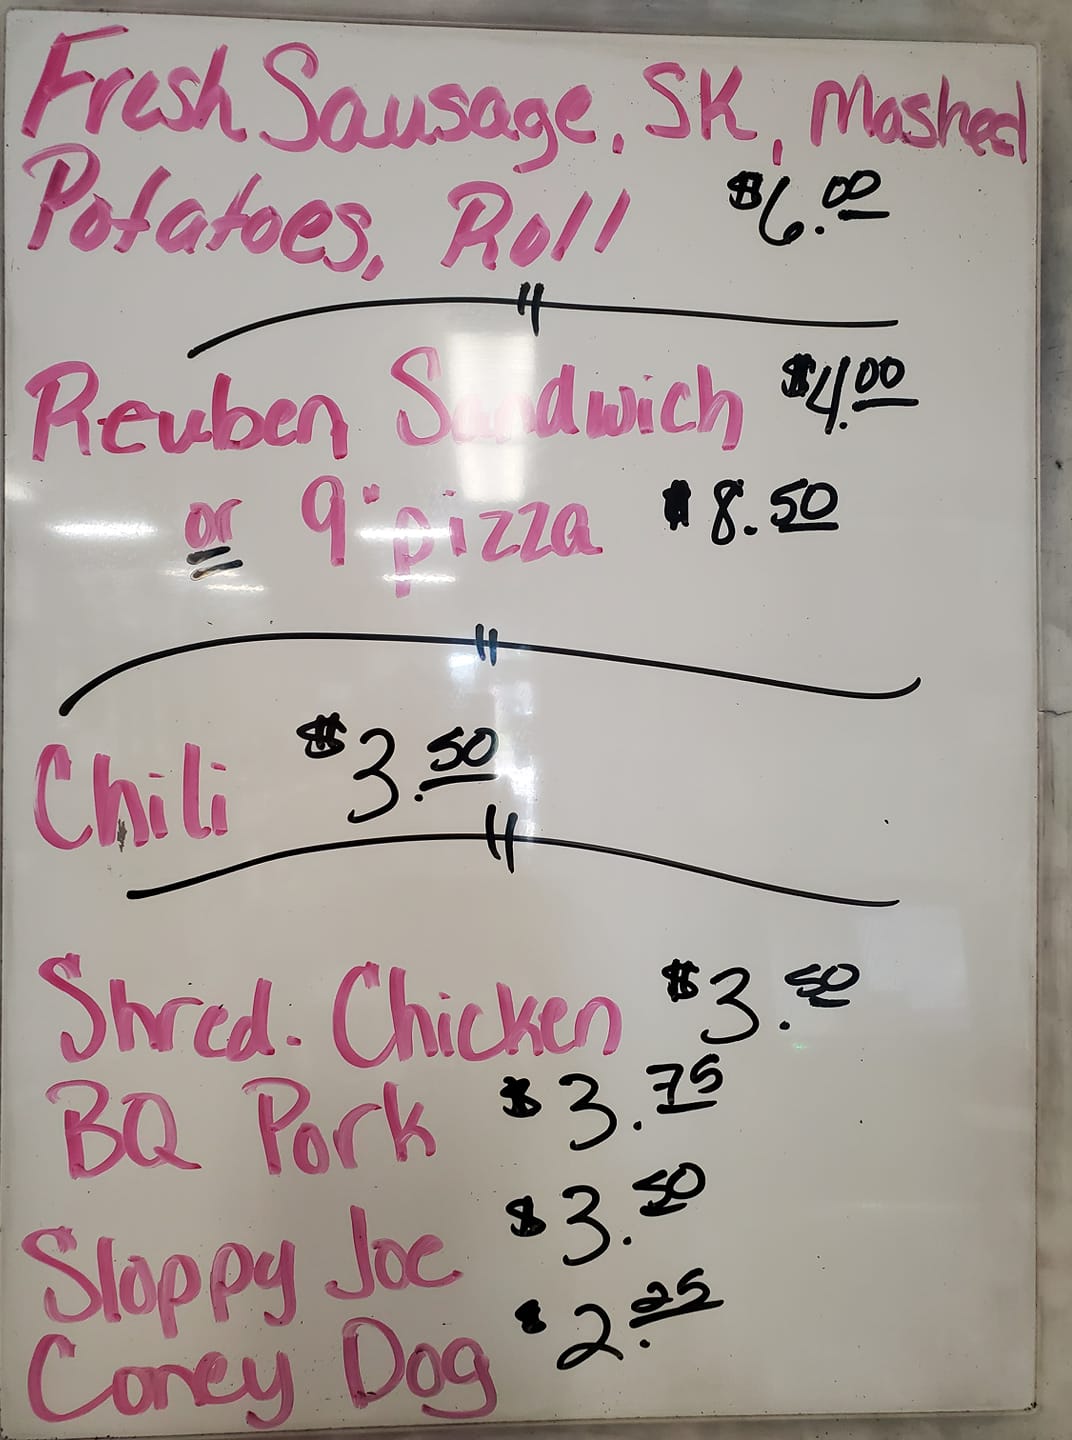 Fresh Sausage, SK, Mashed
Potatoes, Roll $6.00
Reuben Sandwich $4.00
or 9" pizza $8.50
Chili $3.50
Shred. Chicken $3.50
BQ Pork $3.75
Sloppy Joe $3.50
Coney Dog $2.25